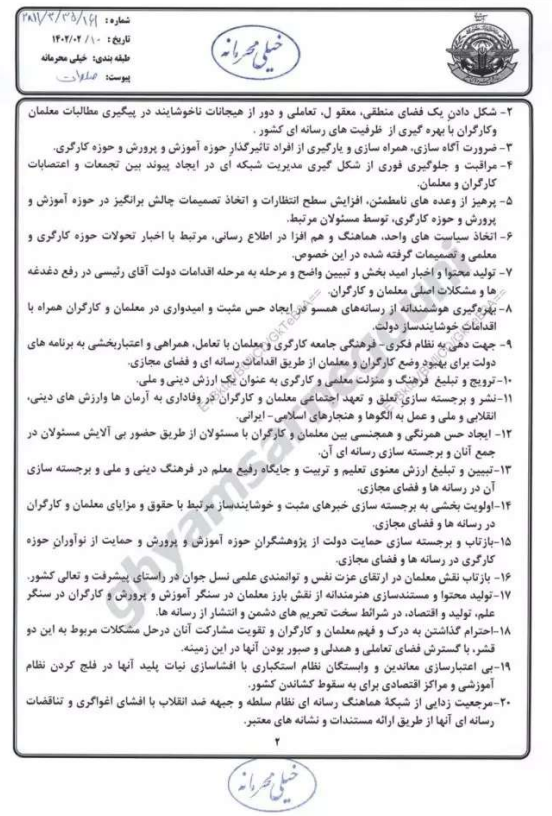 شماره : ۲۸۱۱/۳/۳۵/۱۶۱
تاریخ : ۱۴۰۲/۰۲/۱۰
طبقه بندی: خیلی محرمانه
پیوست:
خیلی محرمانه
۲- شکل دادنِ یک فضای منطقی، معقو ل، تعاملی و دور از هیجانات ناخوشایند در پیگیری مطالبات معلمان
وکارگران با بهره گیری از ظرفیت های رسانه ای کشور .
۳- ضرورت آگاه سازی، همراه سازی و یارگیری از افراد تاثیرگذارِ حوزه آموزش و پرورش و حوزه کارگری.
۴- مراقبت و جلوگیری فوری از شکل گیری مدیریت شبکه ای در ایجاد پیوند بین تجمعات و اعتصابات
کارگران و معلمان.
۵- پرهیز از وعده های نامطمئن، افزایش سطح انتظارات و اتخاذ تصمیمات چالش برانگیز در حوزه آموزش و
پرورش و حوزه کارگری، توسط مسئولان مرتبط.
۶- اتخاذ سیاست های واحد، هماهنگ و هم افزا در اطلاع رسانی، مرتبط با اخبار تحولات حوزه کارگری و
معلمی و تصمیمات گرفته شده در این خصوص.
۷- تولید محتوا و اخبار امید بخش و تبیین واضح و مرحله به مرحله اقدامات دولت آقای رئیسی در رفع دغدغه
ها و مشکلات اصلی معلمان و کارگران.
۸- بهره‌گیری هوشمندانه از رسانه‌های همسو در ایجاد حس مثبت و امیدواری در معلمان و کارگران همراه با
اقدامات خوشایندساز دولت.
۹- جهت دهی به نظام فکری - فرهنگی جامعه کارگری و معلمان با تعامل، همراهی و اعتباربخشی به برنامه های
دولت برای بهبود وضع کارگران و معلمان از طریق اقدامات رسانه ای و فضای مجازی.
۱۰- ترویج و تبلیغ فرهنگ و منزلت معلمی و کارگری به عنوان یک ارزش دینی و ملی.
۱۱- نشر و برجسته سازی تعلق و تعهد اجتماعی معلمان و کارگران در وفاداری به آرمان ها وارزش های دینی،
انقلابی و ملی و عمل به الگوها و هنجارهای اسلامی- ایرانی.
۱۲- ایجاد حس همرنگی و همجنسی بین معلمان و کارگران با مسئولان از طریق حضور بی آلایش مسئولان در
جمع آنان و برجسته سازی رسانه ای آن.
۱۳-تبیین و تبلیغ ارزش معنوی تعلیم و تربیت و جایگاه رفیع معلم در فرهنگ دینی و ملی و برجسته سازی
آن در رسانه ها و فضای مجازی.
۱۴-اولویت بخشی به برجسته سازی خبرهای مثبت و خوشایندساز مرتبط با حقوق و مزایای معلمان و کارگران
در رسانه ها و فضای مجازی.
۱۵-بازتاب و برجسته سازی حمایت دولت از پژوهشگرانِ حوزه آموزش و پرورش و حمایت از نوآورانِ حوزه
کارگری در رسانه ها و فضای مجازی.
۱۶- بازتاب نقش معلمان در ارتقای عزت نفس و توانمندی علمی نسل جوان در راستای پیشرفت و تعالی کشور.
۱۷-تولید محتوا و مستندسازی هنرمندانه از نقش بارز معلمان در سنگر آموزش و پرورش و کارگران در سنگر
علم، تولید و اقتصاد، در شرائط سخت تحریم های دشمن و انتشار از رسانه ها.
۱۸-احترام گذاشتن به درک و فهم معلمان و کارگران و تقویت مشارکت آنان درحل مشکلات مربوط به این دو
قشر، با گسترش فضای تعاملی و همدلی و صبور بودن آنها در این زمینه.
۱۹-بی اعتبارسازی معاندین و وابستگان نظام استکباری با افشاسازی نیات پلید آنها در فلج کردن نظام
آموزشی و مراکز اقتصادی برای به سقوط کشاندن کشور.
۲۰-مرجعیت زدایی از شبکهٔ هماهنگ رسانه ای نظام سلطه و جبهه ضد انقلاب با افشای اغواگری و تناقضات
رسانه ای آنها از طریق ارائه مستندات و نشانه های معتبر.
۲
خیلی محرمانه
ghyamsarnegouni